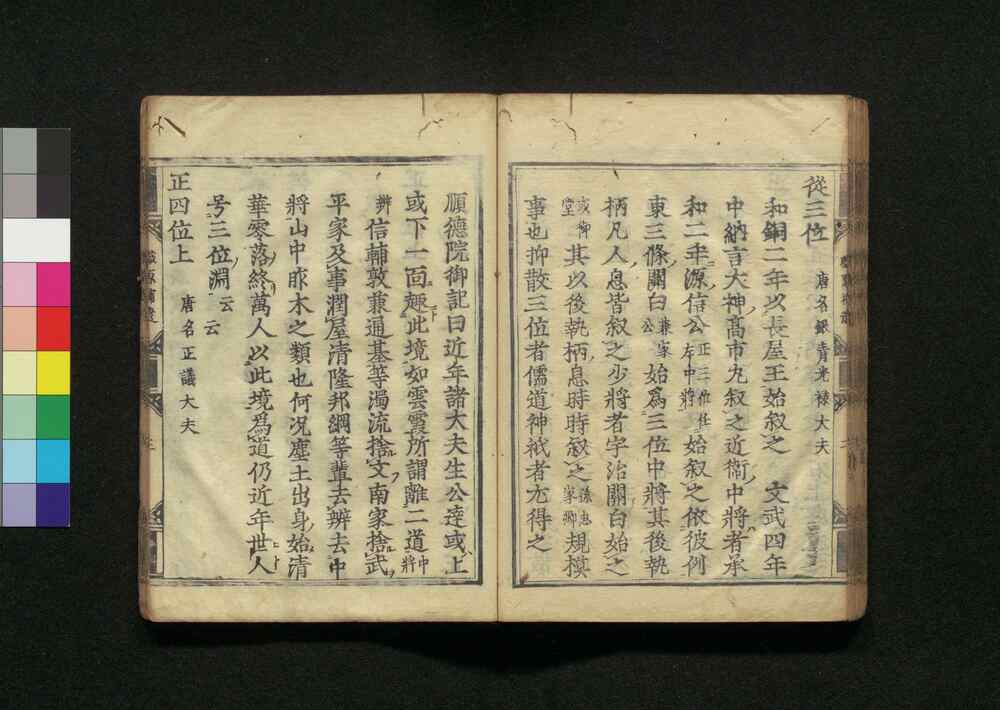 從三位 唐名銀青光祿大夫
和銅二年以長屋王始叙之 文武四年
中納言大神髙市九叙之近衞中將者承
和二年源信公正三位左中將始叙之依彼例
東三條關白兼家公始爲三位中將其後執
柄凡人息皆叙之少將者宇治關白始之
或御堂其以後執柄息時時叙之家卿規模
事也抑散三位者儒道神祇者尤得之
順德院御記曰近年諸大夫生公達或上
或下一面趣此境如雲霞所謂離二道中將
辨信輔敦兼通基等濁流捨文南家捨武
平家及事潤屋清隆邦綱等輩去辨去中
將山中辟木之類也何況塵土出身始清
華零落終萬人以此境爲道仍近年世人
号三位淵云云
正四位上 唐名正議大夫